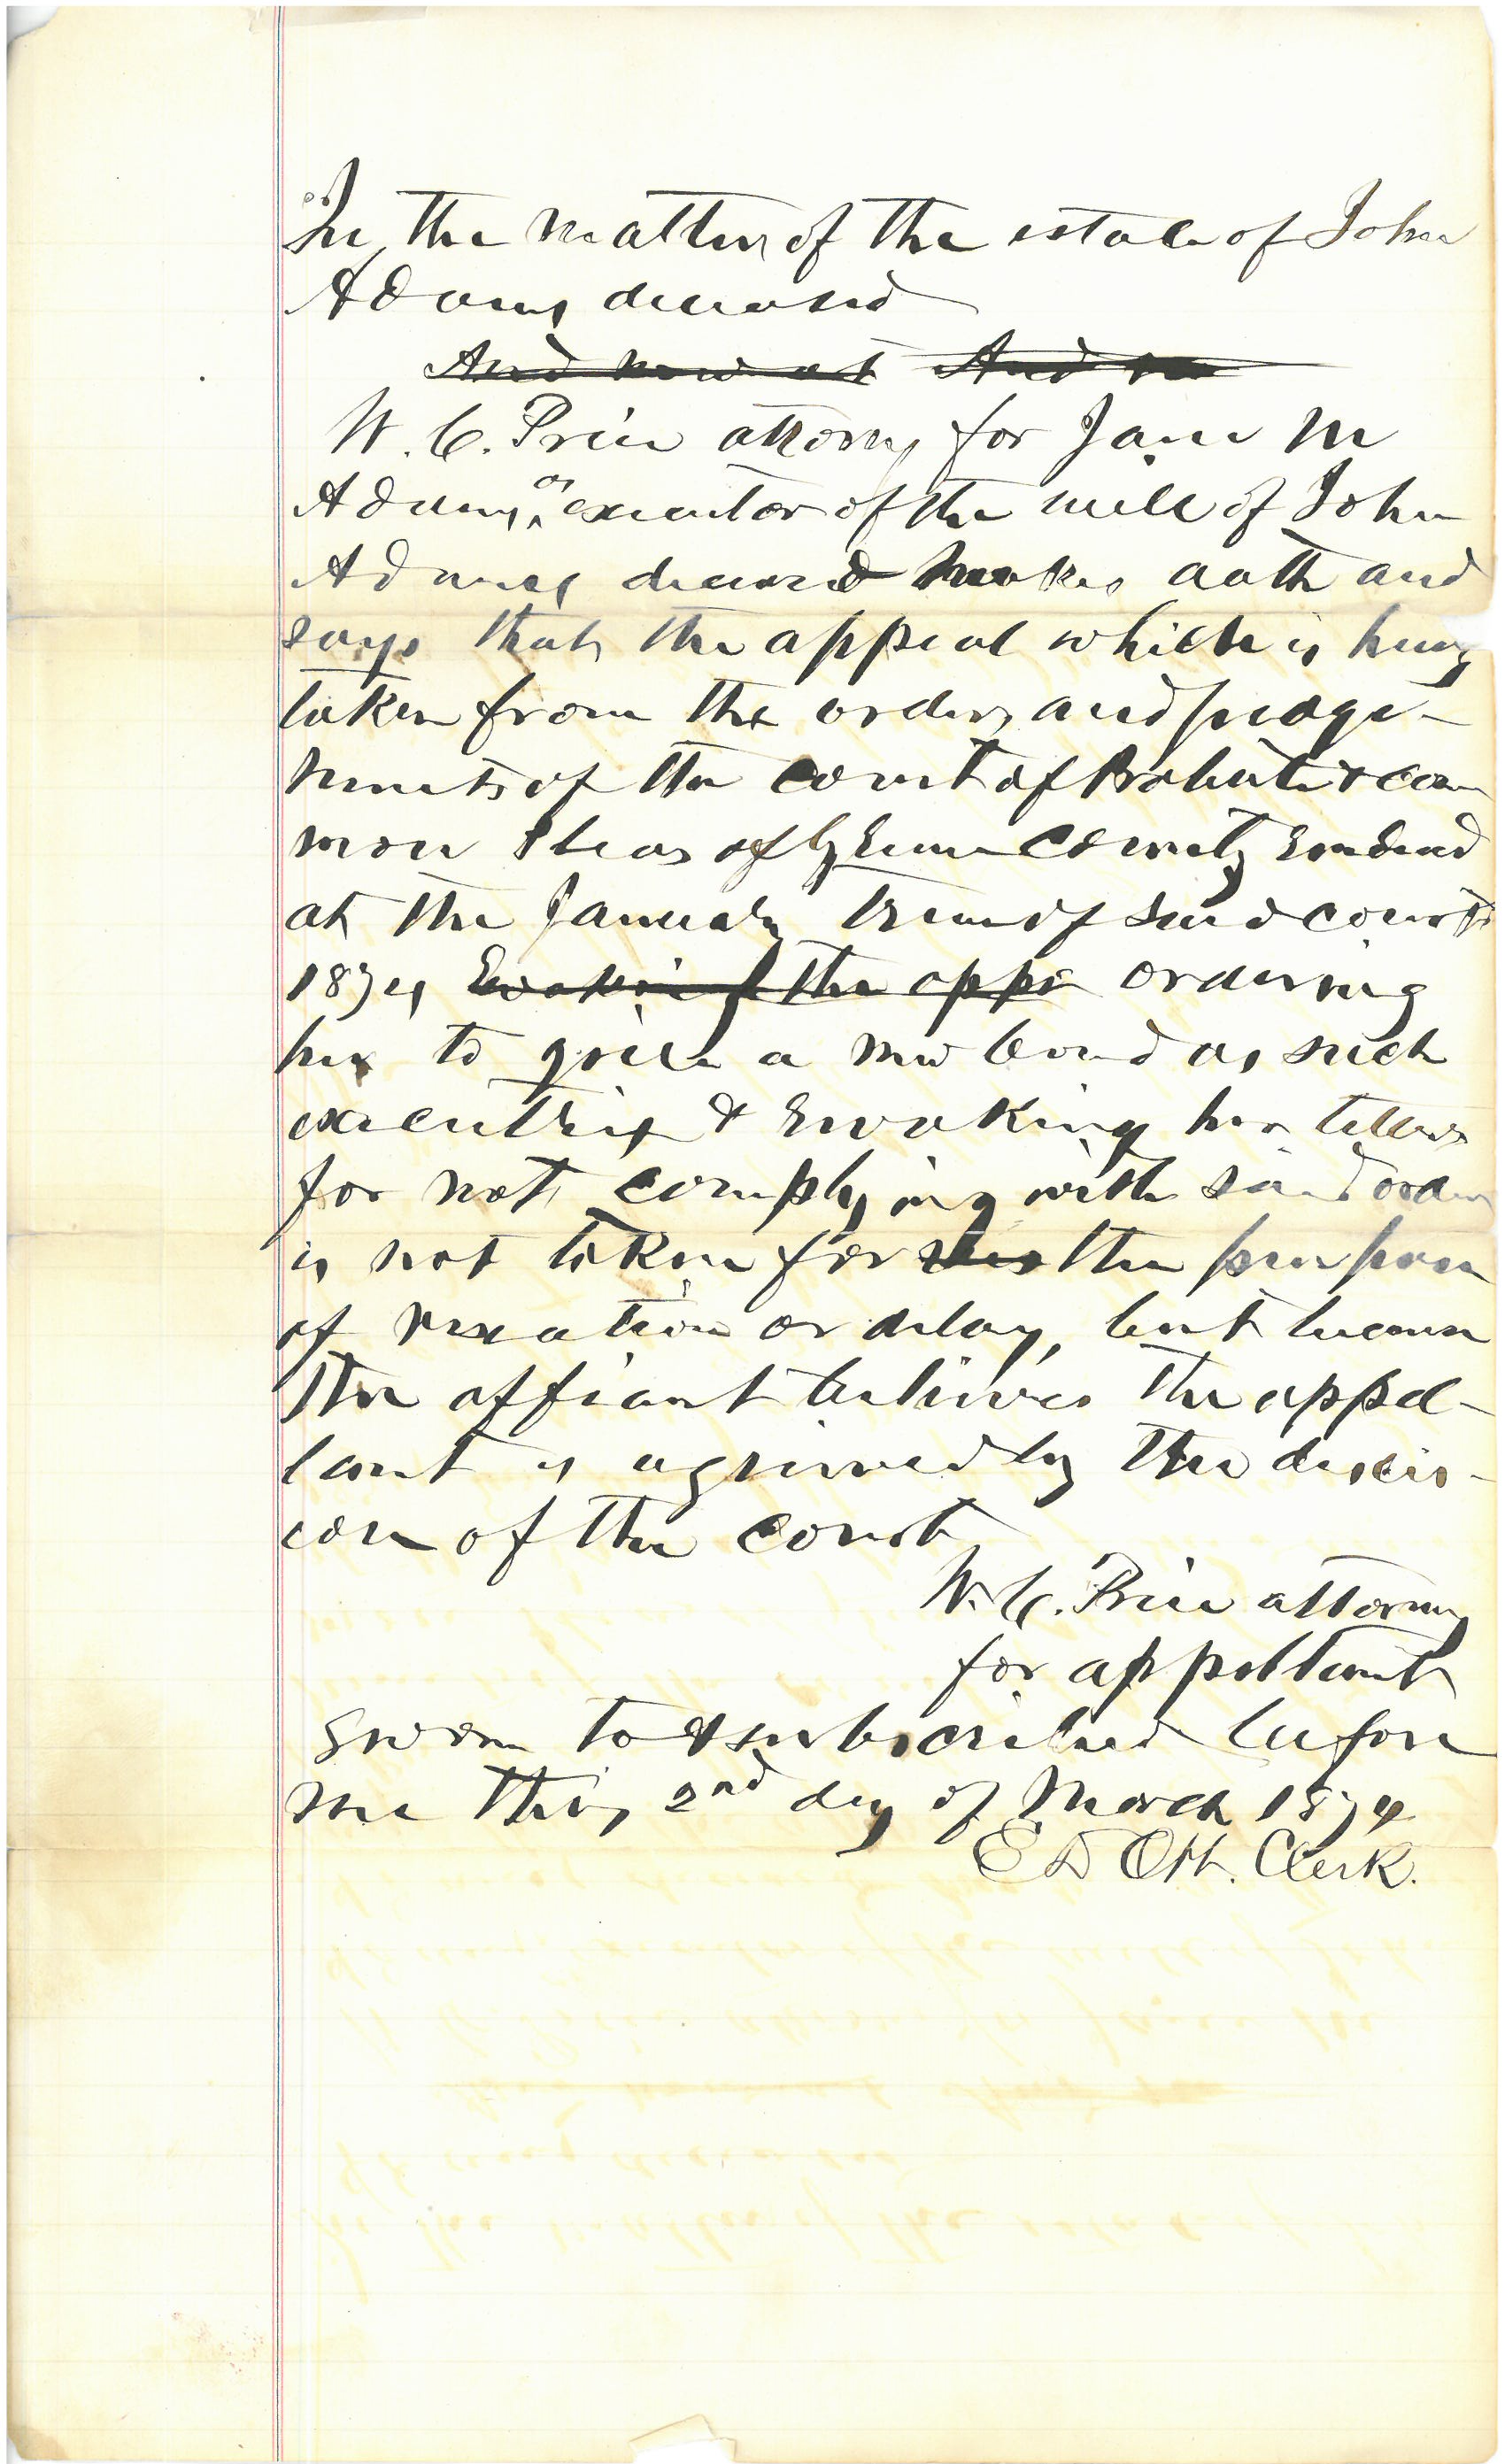 In the matter of the estate of John
Adams deceased
And now at And no
W. C. Price attorney for Jane M
Adams, as executor of the will of John
Adams deceased makes oath and
says that the appeal which is being
taken from the orders and judge-
ments of the court of Probate & com
mon Pleas of Greene County rendered
at the January term of said court
1874 Revoking the appi ordering
her to give a new bond as such
executrix & revoking her letters
for not complying with said order
is not taken for the purpose
of vexation or delay, but because
the affiant believes the appel-
lant is agrieved by the decis-
ion of the court
W. C. Price attorney
for appellant
Sworn to & subscribed before
me this 2nd day of March 1874
E D Ott. Clerk.